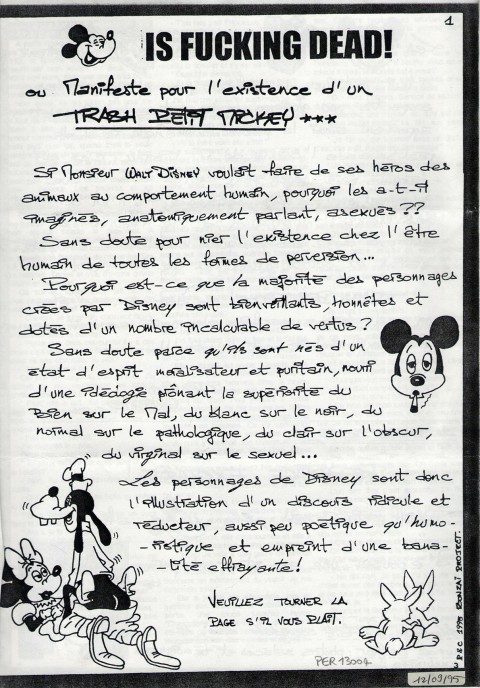 1
IS FUCKING DEAD!
ou Manifeste pour l'existence d'un
TRASH PETIT MICKEY ***
Si Monsieur WALT DISNEY voulait faire de ses héros des
animaux au comportement humain, pourquoi les a-t-il
imaginés, anatomiquement parlant, asexués ??
Sans doute pour nier l'existence chez l'être
humain de toutes les formes de perversion...
Pourquoi est-ce que la majorité des personnages
créés par Disney sont bienveillants, honnêtes et
dotés d'un nombre incalculable de vertus ?
Sans doute parce qu'ils sont nés d'un
état d'esprit moralisateur et puritain, nourri
d'une idéologie prônant la supériorité du
Bien sur le Mal, du blanc sur le noir, du
normal sur le pathologique, du clair sur l'obscur,
du virginal sur le sexuel...
Les personnages de Disney sont donc
l'illustration d'un discours ridicule et
réducteur, aussi peu poétique qu'humo-
-ristique et empreint d'une bana-
-lité effrayante !
VEUILLEZ TOURNER LA
PAGE S'IL VOUS PLAÎT.
P.E.C 1995 BONZAÏ PROJECT.
PER 13004
12/09/95